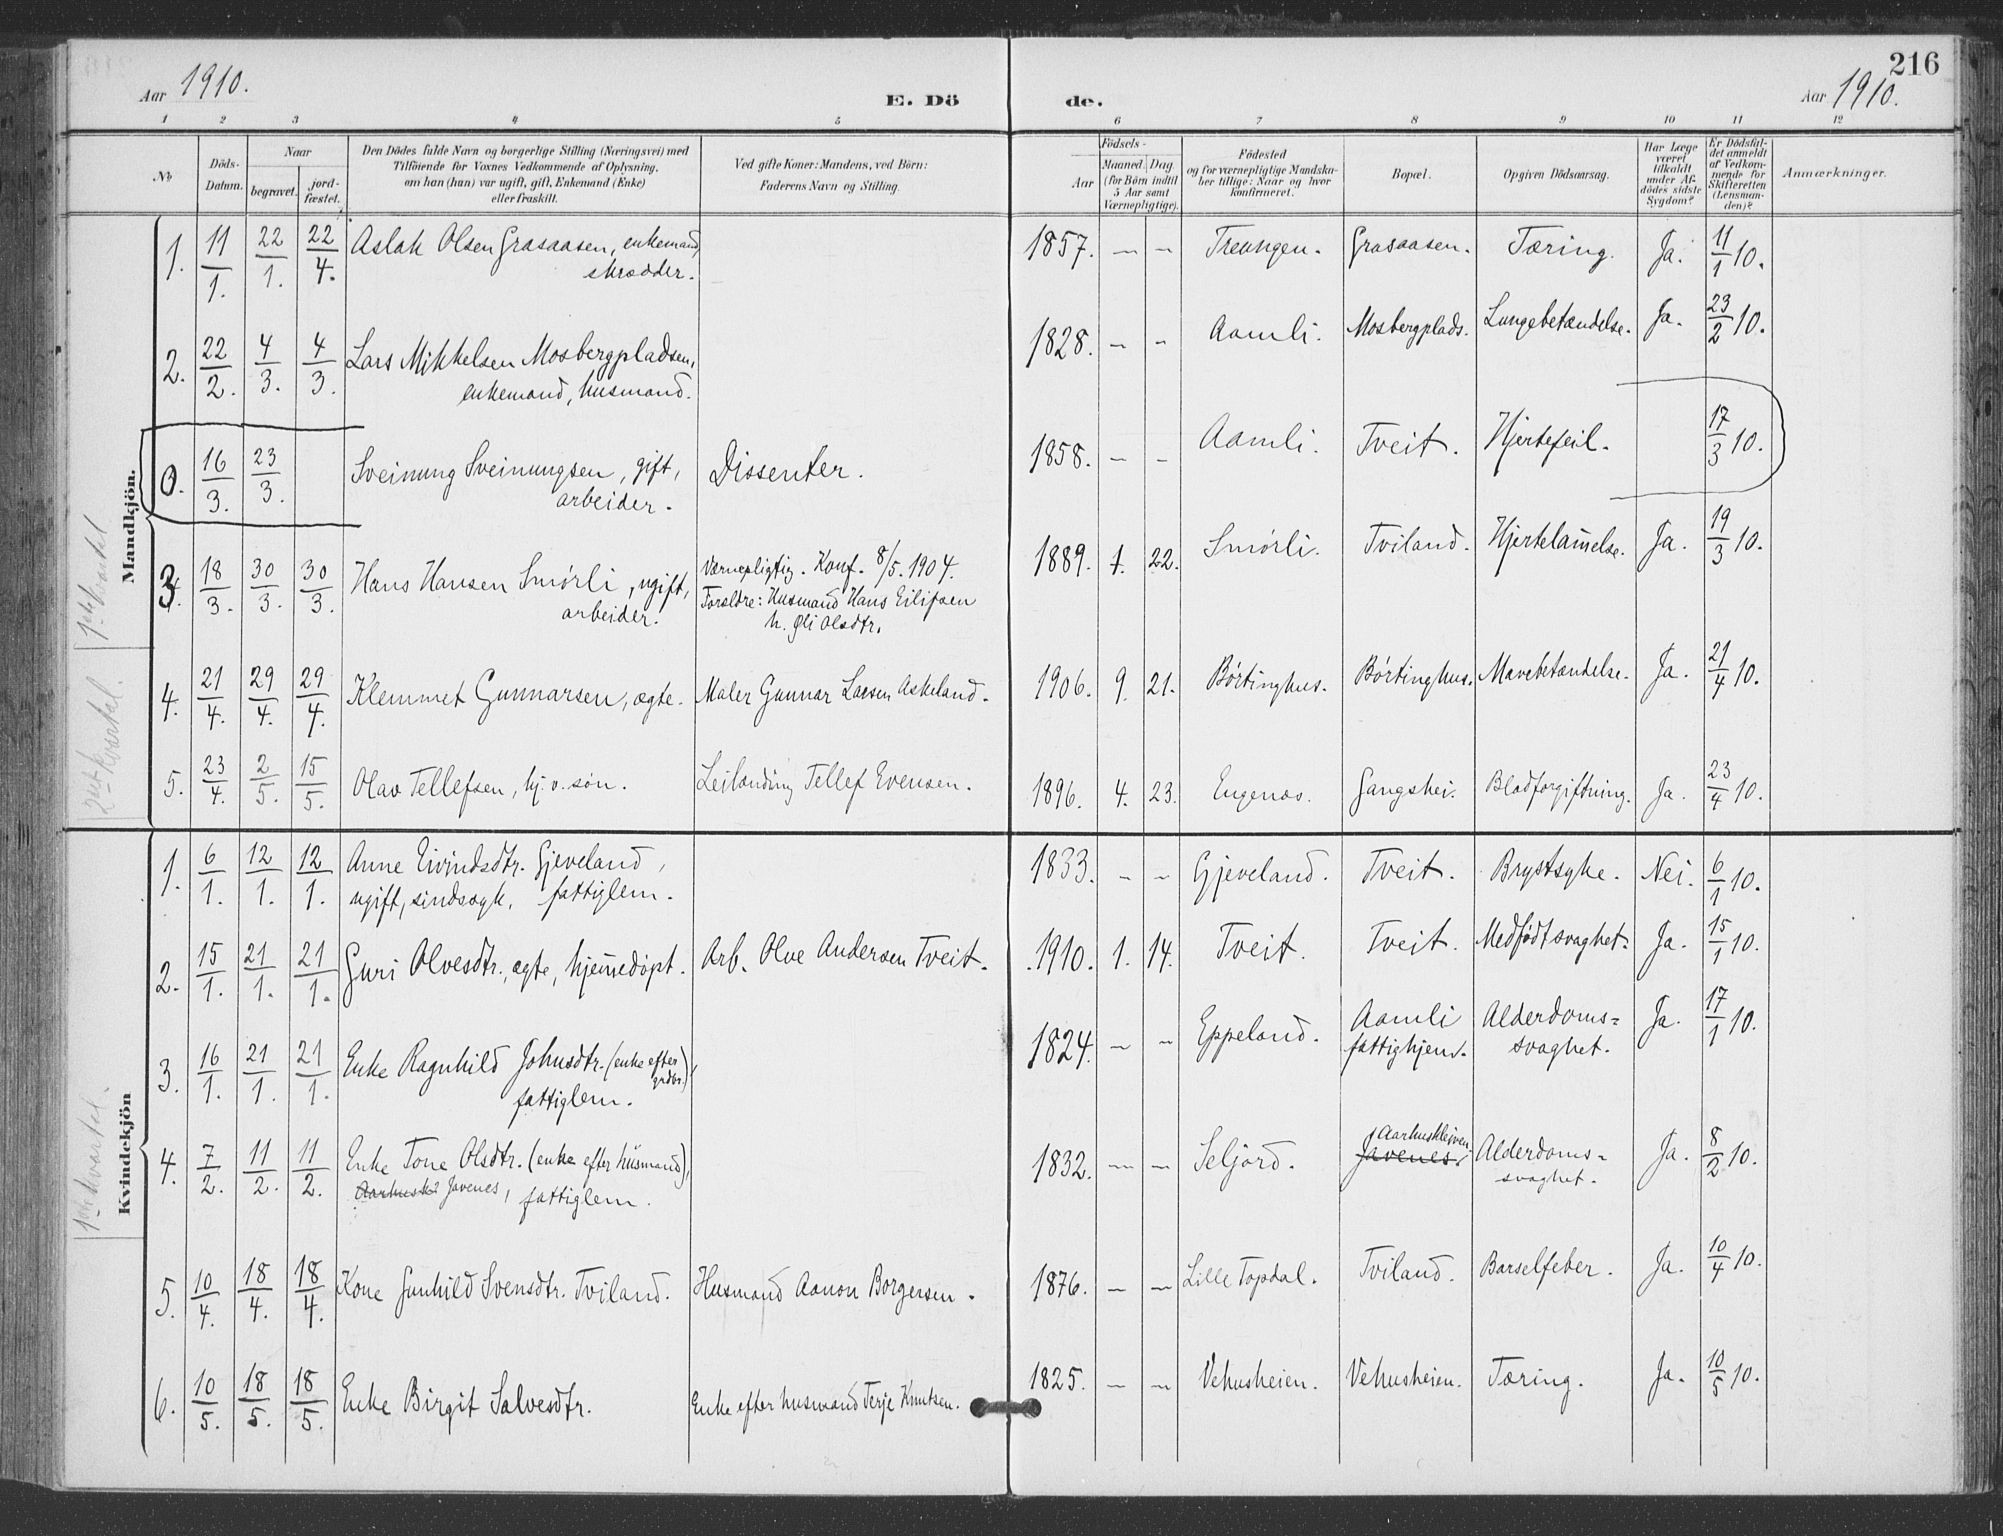 216
Aar 1910.
E. Dö
de.
Aar 1910.
1 2 3 4 5 6 7 8 9 10 11 12
No.
Döds-
Datum.
Naar
begravet.
jord-
fæstet.
Den Dödes fulde Navn og borgerlige Stilling (Næringsvei) med
Tilföiende for Voxnes Vedkommende af Oplysning,
om han (hun) var ugift, gift, Enkemand (Enke)
eller fraskilt.
Ved gifte Koner: Mandens, ved Börn:
Faderens Navn og Stilling.
Födsels-
Aar
Maaned.
Dag
(for Börn indtil
5 Aar samt
Værnepligtige).
Födested
og for værnepligtige Mandskaber tillige: Naar og hvor
konfirmeret.
Bopæl.
Opgiven Dödsaarsag.
Har Læge
været
tilkaldt
under Af-
dödes sidste
Sygdom?
Er Dödsfal-
det anmeldt
af Vedkom-
mende for
Skifteretten
(Lensman-
den)?
Anmærkninger.
Mandkjön.
1ste Kvartal
2det Kvartal.
1. 11/1. 22/1. 22/4. Aslak Olsen Grasaasen, enkemand, 1857. — — Treungen. Grasaasen. Tæring. Ja. 11/1 10.
skrædder.
2. 22/2. 4/3. 4/3. Lars Mikkelsen Mosbergpladsen, 1828. — — Aamli. Mosbergplads. Lungebetændelse. Ja. 23/2 10.
enkemand, husmand.
0. 16/3. 23/3. Sveinung Sveinungsen, gift, Dissenter. 1858. — — Aamli. Tveit. Hjertefeil. 17/3 10.
arbeider.
3. 18/3. 30/3. 30/3. Hans Hansen Smörli, ugift, Værnepligtig. Konf. 8/5. 1904. 1889. 1. 22. Smörli. Tviland. Hjertelam̄else. Ja. 19/3 10.
arbeider. Forældre: Husmand Hans Eilifsen
h. Gli Olsdtr.
4. 21/4. 29/4. 29/4. Klemmet Gunnarsen, ægte. Maler Gunnar Larsen Askeland. 1906. 9. 21. Börtinghus. Börtinghus. Mavebetændelse. Ja. 21/4 10.
5. 23/4. 2/5. 15/5. Olav Tellefsen, hj. v. søn. Leilænding Tellef Evensen. 1896. 4. 23. Engenæs. Gangshei. Blodforgiftning. Ja. 23/4 10.
Kvindekjön
1ste Kvartal.
1. 6/1. 12/1. 12/1. Anne Eivindsdtr. Gjeveland, 1833. — — Gjeveland. Tveit. Brystsyke. Nei. 6/1 10.
ugift, sindssyk, fattiglem.
2. 15/1. 21/1. 21/1. Guri Olvesdtr., ægte, hjem̄edöpt. Arb. Olve Andersen Tveit. 1910. 1. 14. Tveit. Tveit. Medfödt svaghet. Ja. 15/1 10.
3. 16/1. 21/1. 21/1. Enke Ragnhild Johnsdtr. (enke efter grdbr.), 1824. — — Eppeland. Aamli Alderdoms= Ja. 17/1 10.
fattiglem. fattighjem. svaghet.
4. 7/2. 11/2. 11/2. Enke Tone Olsdtr. (enke efter husmand), 1832. — — Seljord. Aarhuskleiven Javenes. Alderdoms= Ja. 8/2 10.
Aarhusk Javenes, fattiglem. svaghet.
5. 10/4. 18/4. 18/4. Kone Gunhild Svensdtr. Tviland. Husmand Aanon Borgersen. 1876. — — Lille Topdal. Tviland. Barselfeber. Ja. 10/4 10.
6. 10/5. 18/5. 18/5. Enke Birgit Salvesdtr. Enke efter husmand Terje Knutsen. 1825. — — Vehusheien. Vehusheien. Tæring. Ja. 10/5 10.